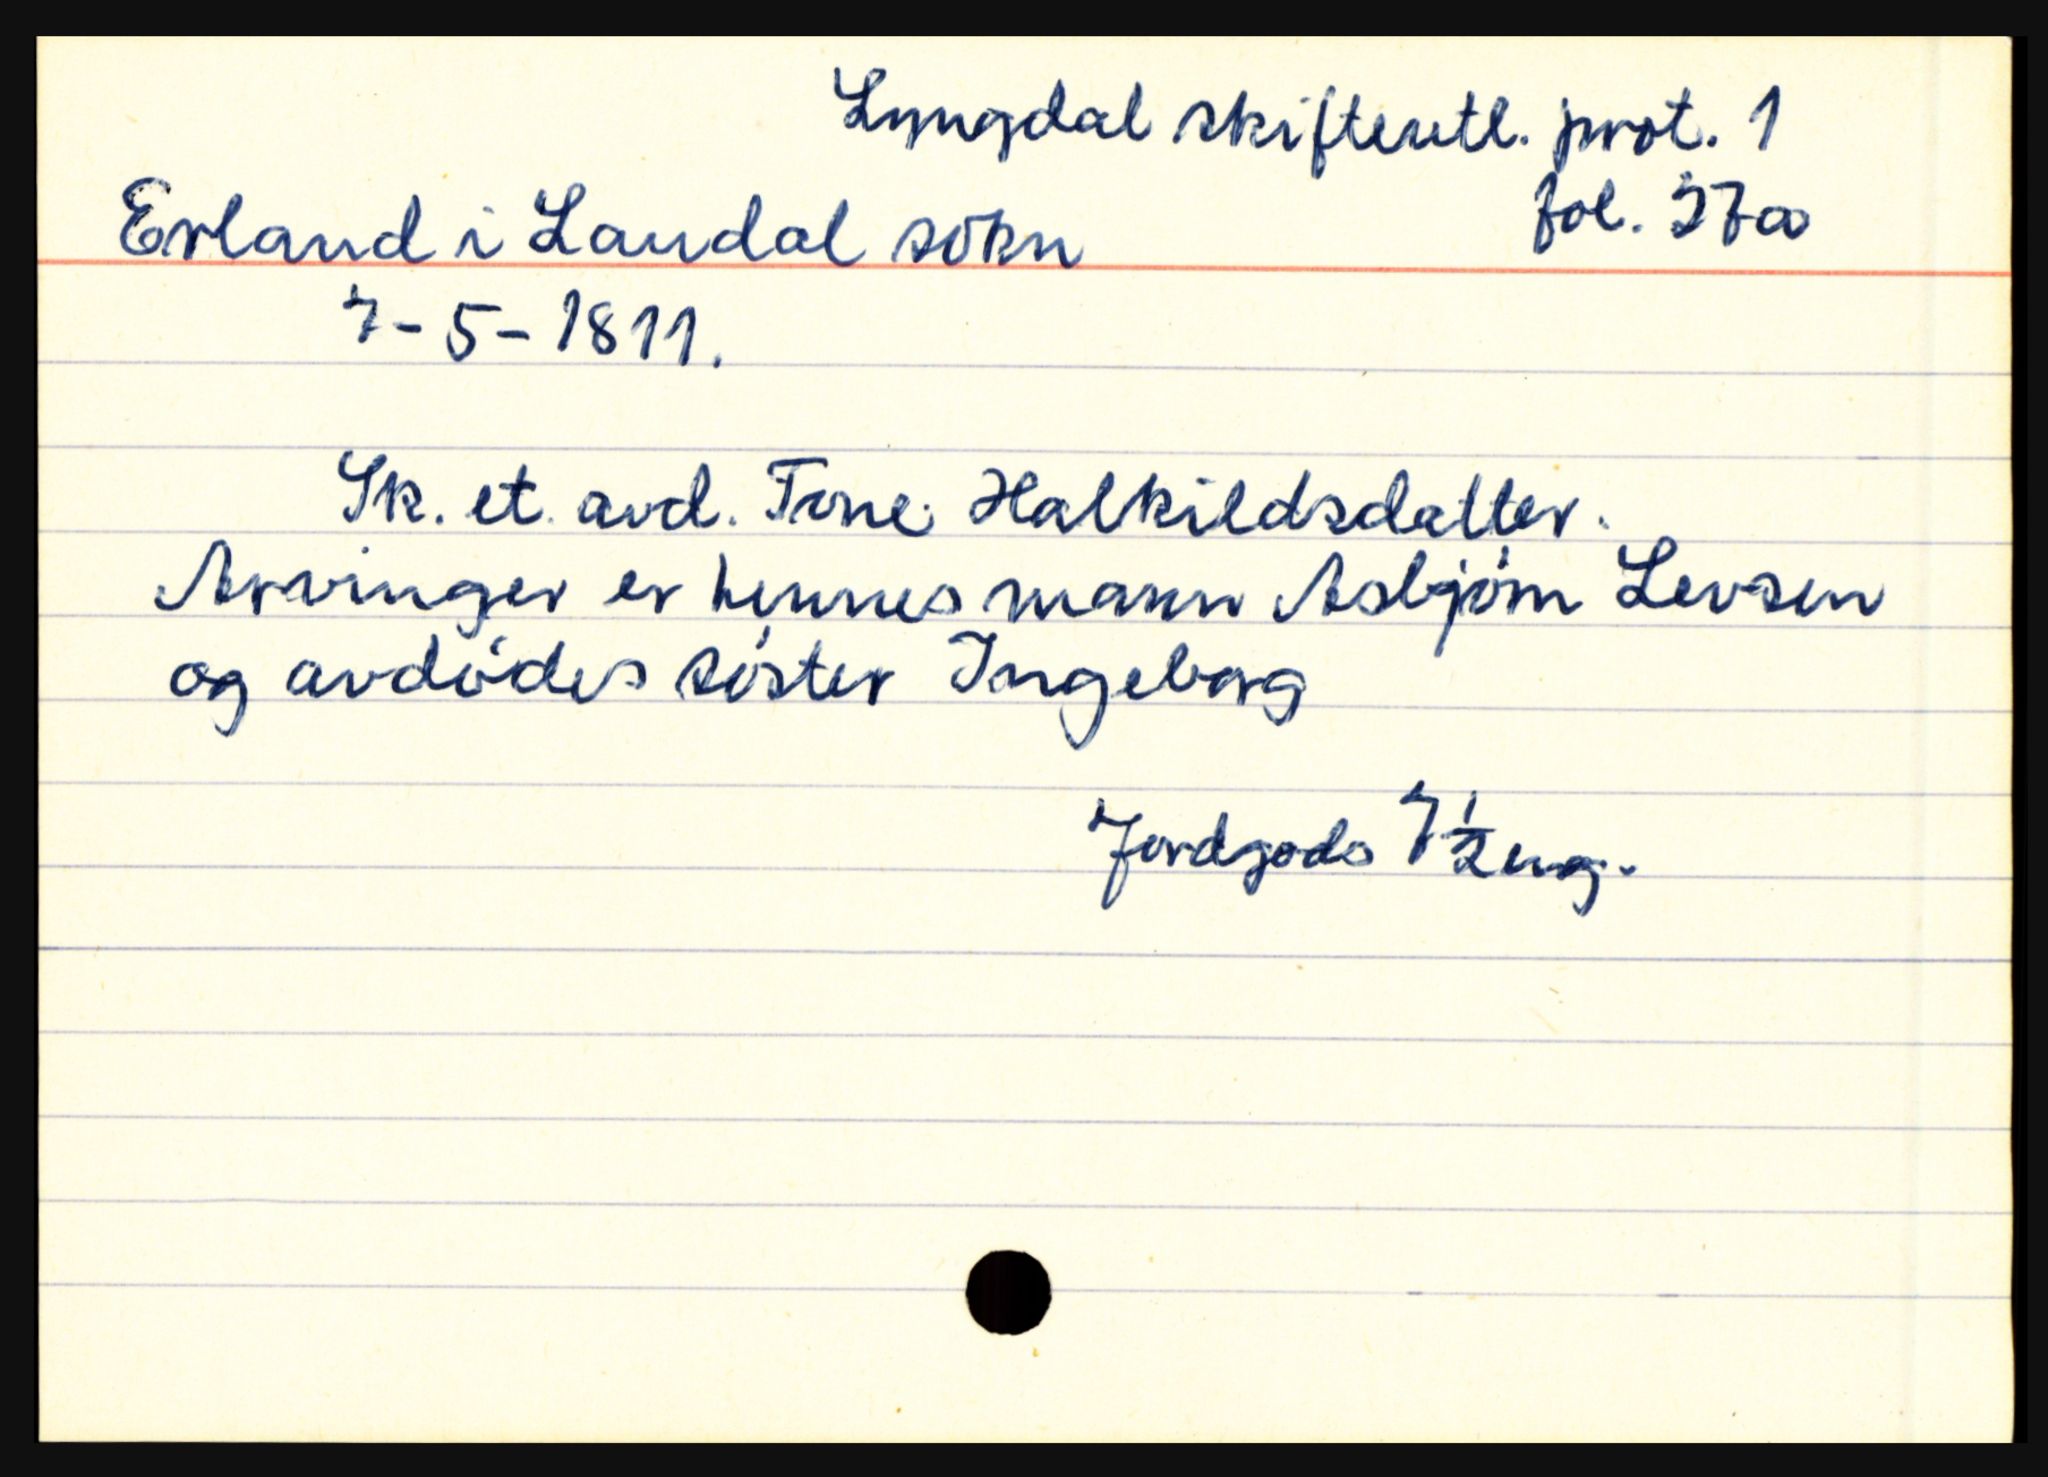 Lyngdal skifteutl. prot. 1
fol. 37a
Erland i Laudal sokn
7-5-1811.
Sk. et. avd. Tone Halkildsdatter.
Arvinger er hennes mann Asbjørn Levsen
og avdødes søster Ingeborg
Jordgods 7 1/2 eng.